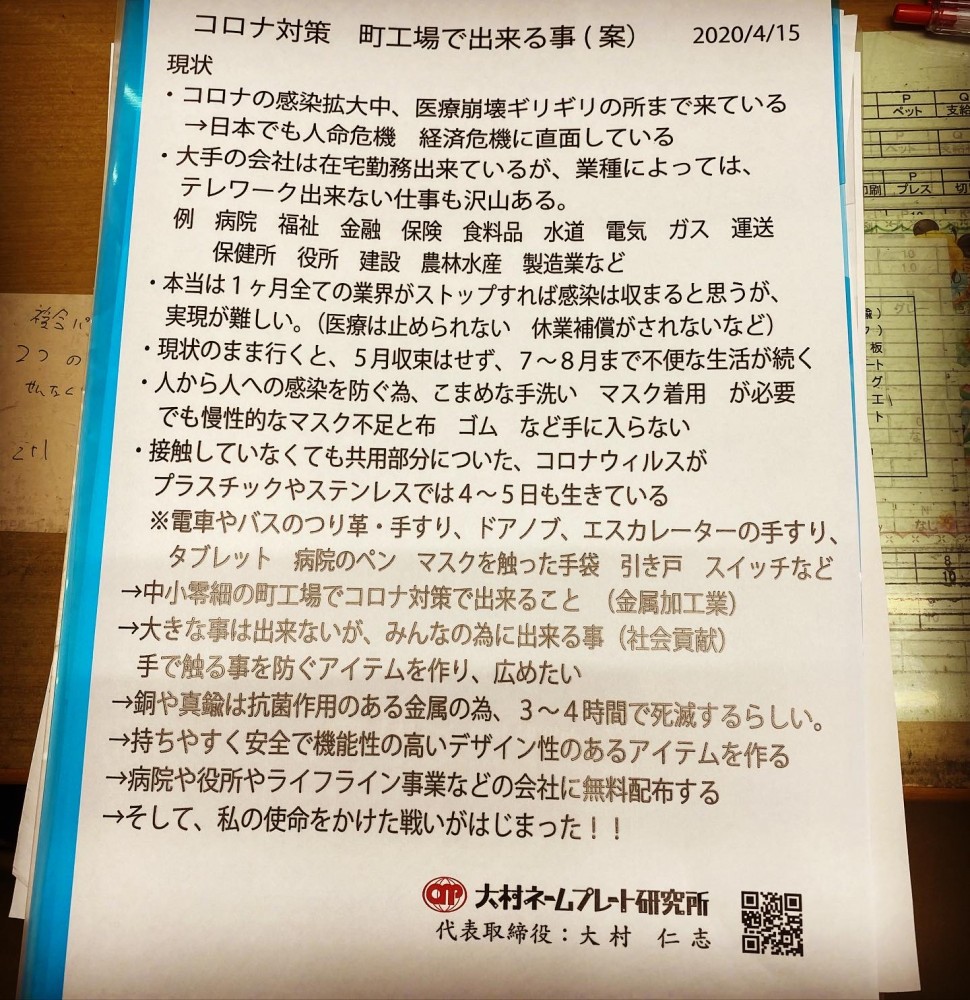 コロナ対策　町工場で出来る事(案)　2020/4/15
現状
・コロナの感染拡大中、医療崩壊ギリギリの所まで来ている
→日本でも人命危機　経済危機に直面している
・大手の会社は在宅勤務出来ているが、業種によっては、
テレワーク出来ない仕事も沢山ある。
例　病院　福祉　金融　保険　食料品　水道　電気　ガス　運送
保健所　役所　建設　農林水産　製造業など
・本当は１ヶ月全ての業界がストップすれば感染は収まると思うが、
実現が難しい。（医療は止められない　休業補償がされないなど）
・現状のまま行くと、５月収束はせず、７～８月まで不便な生活が続く
・人から人への感染を防ぐ為、こまめな手洗い　マスク着用　が必要
でも慢性的なマスク不足と布　ゴム　など手に入らない
・接触していなくても共用部分についた、コロナウィルスが
プラスチックやステンレスでは４～５日も生きている
※電車やバスのつり革・手すり、ドアノブ、エスカレーターの手すり、
タブレット　病院のペン　マスクを触った手袋　引き戸　スイッチなど
→中小零細の町工場でコロナ対策で出来ること　（金属加工業）
→大きな事は出来ないが、みんなの為に出来る事（社会貢献）
手で触る事を防ぐアイテムを作り、広めたい
→銅や真鍮は抗菌作用のある金属の為、３～４時間で死滅するらしい。
→持ちやすく安全で機能性の高いデザイン性のあるアイテムを作る
→病院や役所やライフライン事業などの会社に無料配布する
→そして、私の使命をかけた戦いがはじまった！！
大村ネームプレート研究所
代表取締役：大村　仁志
P
ペット
支給
P
プレス
切
2つの